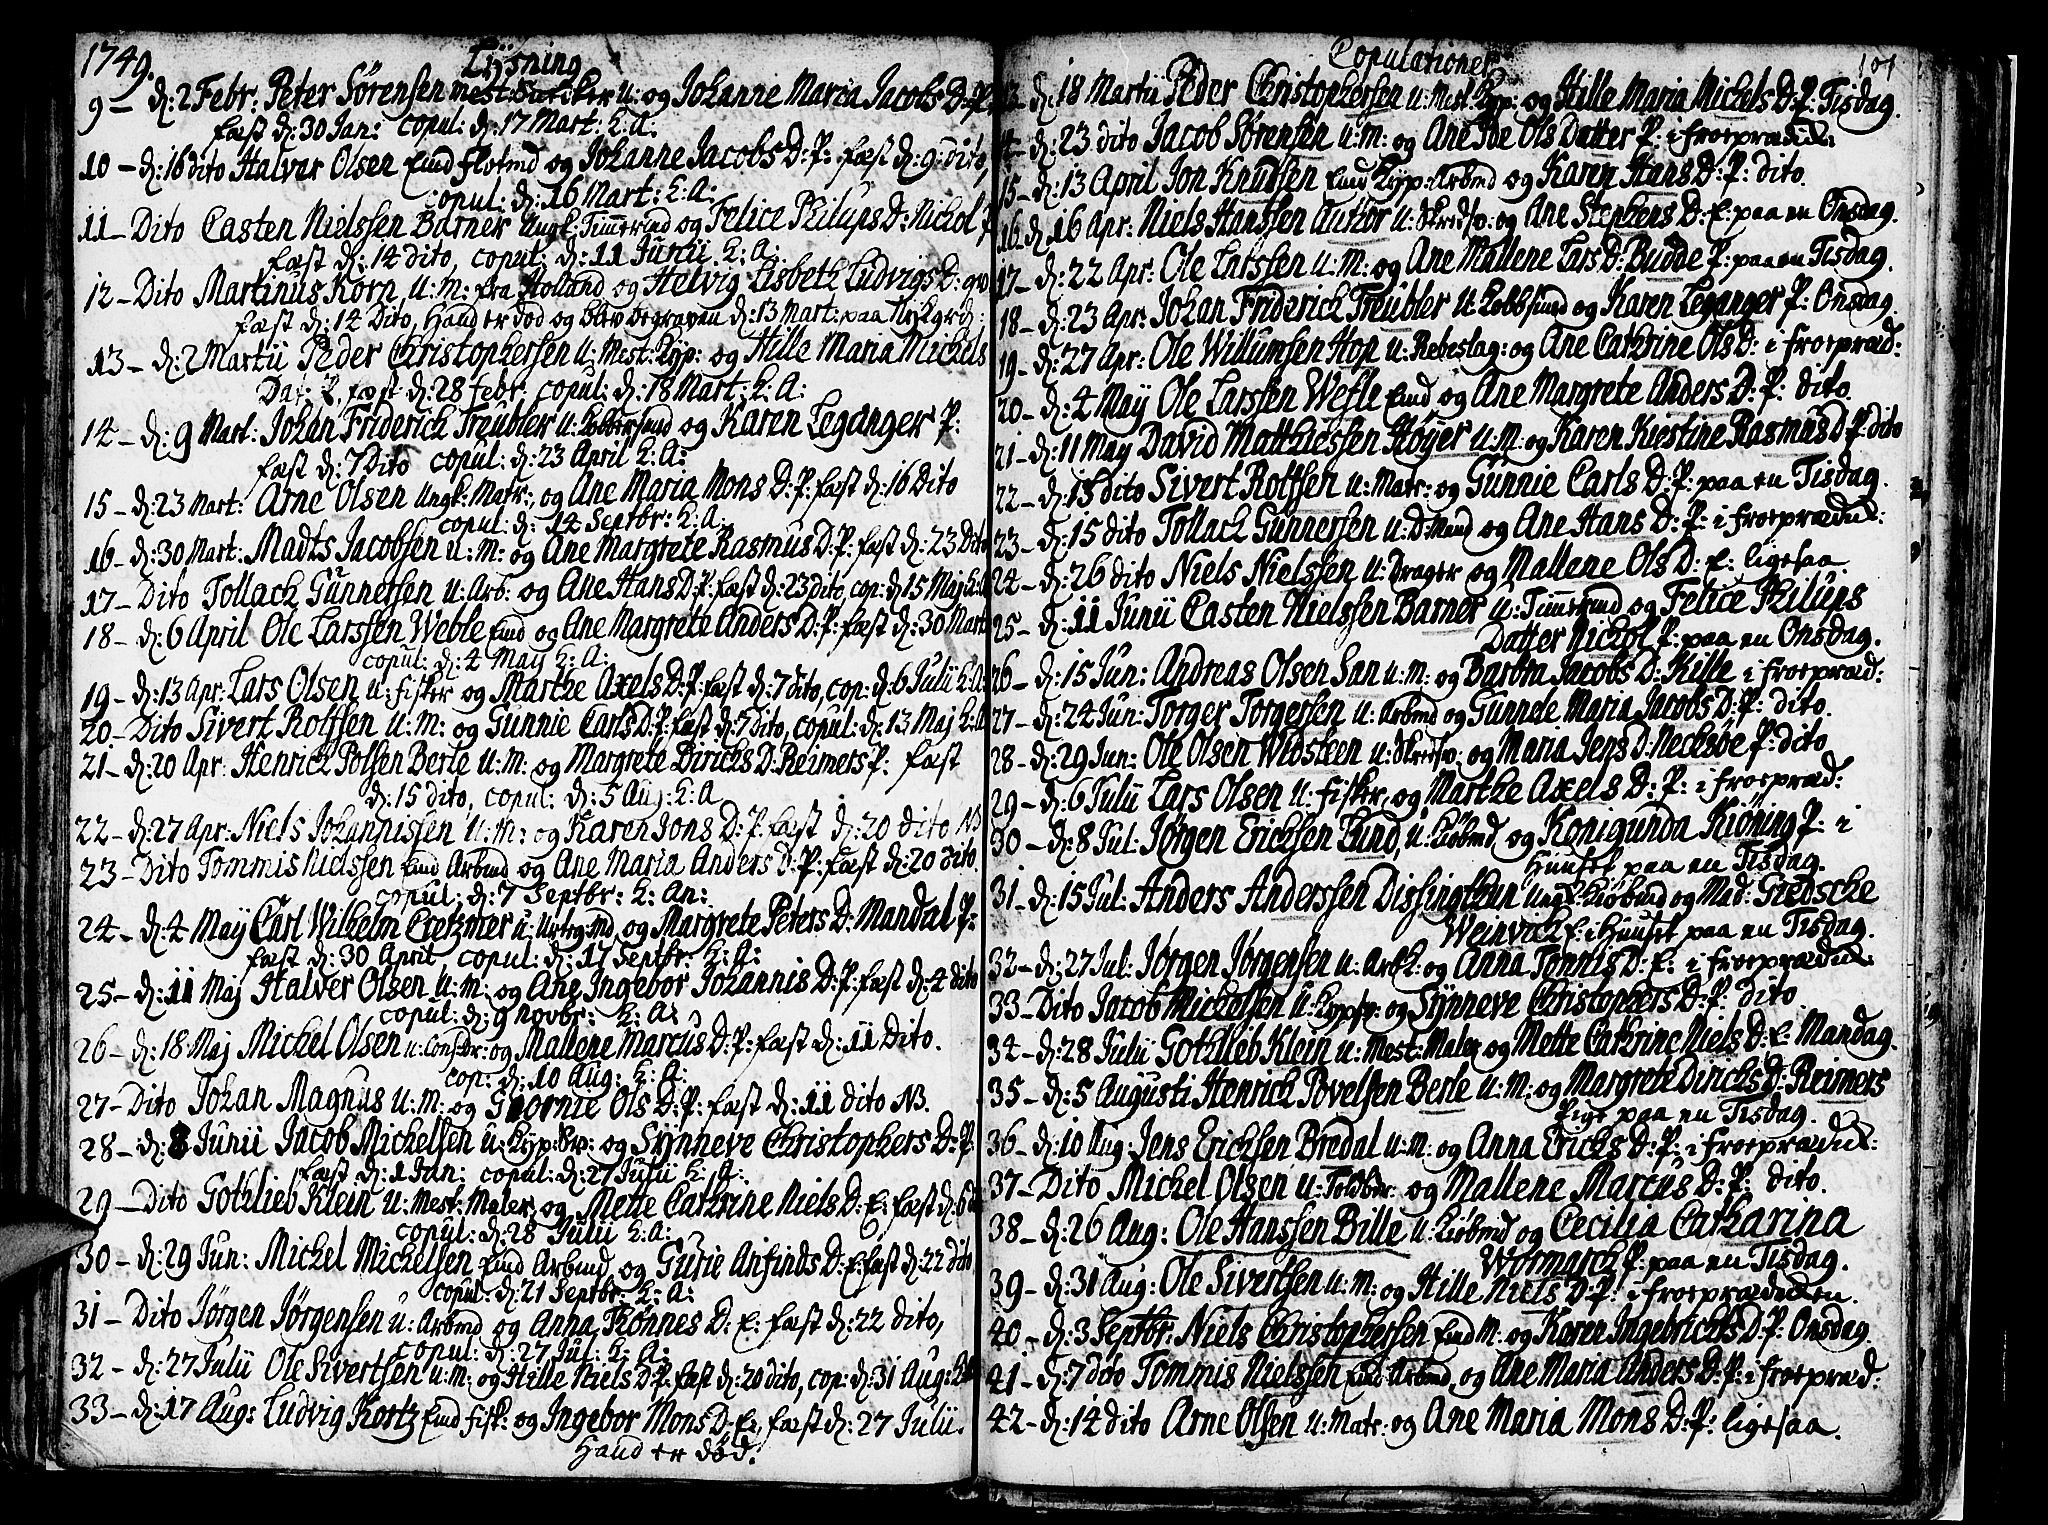 1749. Lÿsning
9 – d: 2 Febr: Peter Sørensen u: og Johanne Maria Jacobs D: P:
fæst d: 30 Jan: copul: d: 17 Mart: k: A:
10 – d: 16 dito Halvar Olsen Emd og Johanne Jacobs D: P: fæst d: 9 dito,
copul: d: 16 Mart: k: A:
11 – Dito Casten Nielssen Barner Ungk: Timmermd og Felice Philups D: Nickol P
fæst d: 14 dito, copul: d: 11 Junii k: A:
12 – Dito Martinus Korn u: m: fra Holland og Helvig Lisbeth Ludvigs D:
fæst d: 14 Dito, Hand er død og blev begraven d: 13 Mart: paa
13 – d: 2 Martii Peder Christophersen u: Mest: Kyp: og Hille Maria Michels
Dat: P. fæst d: 28 febr. copul: d: 18 Mart: k: A:
14 – d: 9 Mart: Johan Friderich Treubler u: Kobbersmd og Karen Leganger P:
fæst d: 7 Dito copul: d: 23 April k: A:
15 – d: 23 Mart: Arne Olsen Ungk: Matr:, og Ane Maria Mons D: P: fæst d: 16 Dito
copul: d: 14 Septbr: k: A:
16 – d: 30 Mart: Madts Jacobsen u: m: og Ane Margrete Rasmus D: P: fæst d: 23 Dito
17 – Dito Tollach Gunnersen u: Arb: og Ane Hans D: P: fæst d: 23 dito, cop: d: 15 Maj k: A
18 – d: 6 April Ole Larssen Weble Emd og Ane Margrete Anders D: P: fæst d: 30 Mart
copul: d: 4 May k: A:
19 – d: 13 Apr: Lars Olsen u: fisker og Marthe Axels D: P: fæst d: 7 dito, cop: d: 6 Julii k: A:
20 – Dito Sivert Rolfsen u: m: og Gunnie Carls D: P: fæst d: 7 Dito, copul: d: 13 Maj k: A
21 – d: 20 Apr: Henrich Polsen Berle u: m: og Margrete Dirichs D: Reimers P: fæst
d: 15 dito, copul: d: 5 Aug: k: A
22 – d: 27 Apr: Niels Johannissen u: m: og Karen Jons D: P: fæst d: 20 dito NB
23 – Dito Tommis Nielssen Emd Arbmd og Ane Maria Anders D: P: fæst d: 20 dito.
copul: d: 7 Septbr: k: An:
24 – d: 4 May Carl Wilhelm Cretzmer u: Urtegmd og Margrete Peters D: Mandal P:
fæst d: 30 April copul: d: 17 Septbr: k: A:
25 – d: 11 Maj Halver Olsen u: m: og Ane Ingebor Johannis D: P: fæst d: 4 dito
copul: d: 9 Novbr: k: A:
26 – d: 18 Maj Michel Olsen u: og Mallene Marcus D: P: fæst d: 11 Dito.
cop: d: 10 Aug: k: A:
27 – Dito Johan Magnus u: m: og Ols D: P: fæst d: 11 dito NB.
28 – d: 8 Junii Jacob Michelsen u: Kyp: Sv: og Sÿnneve Christophers D: P
fæst d: 1 Jan: copul: d: 27 Julii k: A:
29 – Dito Gothlieb Klein u: Mest: Maler, og Mette Cathrine Niels D: E: fæst d: 6
copul: d: 28 Julii k: A:
30 – d: 29 Jun: Michel Michelsen Emd Arbmd og Gurie Anfinds D: E: fæst d: 22 dito
copul: d: 21 Septbr: k: A:
31 – Dito Jørgen Jørgensen u: Arbmd og Anna Tønnes D: E: fæst d: 22 dito,
copul: d: 27 Jul: k: A:
32 – d: 27 Julii Ole Sivertsen u: m: og Hille Niels D: P: fæst d: 20 dito, cop: d: 31 Aug:
33 – d: 17 Aug: Ludvig Kortz Emd fisk: og Ingebor Mons D: E:, fæst d: 27 Julii.
Hand er død.
Copulationer 101
13 d: 18 Martii Peder Christophersen u: Mest: Kyp: og Hille Maria Michels D: P: Tisdag.
14 – d: 23 dito Jacob Sørensen u: m: og Ane Ols Datter P: i froeprædik:
15 – d: 13 April Jon Knudsen Emd Kyp: Arbmd og Karen Hans D: P: dito.
16 d: 16 Apr: Niels Hanssen Author u: Skredsv: og Ane Stephens D: E: paa en Onsdag.
17 – d: 22 Apr: Ole Larssen u: m: og Ane Mallene Lars D: Budde P: paa en Tisdag.
18 – d: 23 Apr: Johan Friderich Treubler u: Kobbsmd og Karen Leganger P: Onsdag.
19 – d: 27 Apr: Ole Willumsen Hop u: Rebeslag: og Ane Cathrine Ols D: i froepræd:
20 – d: 4 May Ole Larssen Wefle Emd og Ane Margrete Anders D: P: dito.
21 – d: 11 May David Matthiessen Høyer u: m: og Karen Kiestine Rasmus D P: dito
22 – d: 13 dito Sivert Rolfsen u: Matr: og Gunnie Carls D: P: paa en Tisdag.
23 – d: 15 dito Tollach Gunnersen u: D: Mand og Ane Hans D: P: i froeprædik:
24 – d: 26 dito Niels Nielssen u: Drager og Mallene Ols D: E: ligesaa.
25 – d: 11 Junii Casten Nielssen Barner u: Timmermd og Felice Philups
Datter Nickol P: paa en Onsdag.
26 – d: 15 Jun: Andreas Olsen San u: m: og Barbra Jacobs D: Kille i froepræd:
27 – d: 24 Jun: Torger Torgersen u: Arbmd og Gunnele Maria Jacobs D: P: dito.
28 – d: 29 Jun: Ole Olsen Widsteen u: Skredsv: og Maria Jens D: Necksøe P: dito
29 – d: 6 Julii Lars Olsen u: fisker, og Marthe Axels D: P: i froepræd:
30 – d: 8 Jul: Jørgen Ericksen Lund, u: Kiøbmd og Konigunda Kiøning P: i
Huuset paa en Tisdag.
31 – d: 15 Jul: Anders Anderssen Dissingthun Ungk: Kiøbmd og Mad: Gredsche
Weinvich E: i Huuset paa en Tisdag.
32 – d: 27 Jul: Jørgen Jørgensen u: Arbk: og Anna Tønnis D: E: i froeprædik:
33 – Dito Jacob Michelsen u: Kypsv: og Sÿnneve Christophers D: P: dito.
34 – d: 28 Julii Gothlieb Klein u: Mest: Maler og Mette Cathrine Niels D: E: Mandag.
35 – d: 5 Augusti Henrich Povelsen Berle u: m: og Margrete Dirichs D: Reimers
P: paa en Tisdag.
36 – d: 10 Aug: Jens Ericksen Bredal u: m: og Anna Erichs D: P: i froeprædik:
37 – Dito Michel Olsen u: Toldbr: og Mallene Marcus D: P: dito.
38 – d: 26 Aug: Ole Hanssen Bille u: Kiøbmd og Cecilia Catharina
Wormarch P: paa en Tisdag.
39 – d: 31 Aug: Ole Sivertsen u: m: og Hille Niels D: P: i froeprædiken.
40 – d: 3 Septbr: Niels Christophersen Emd m: og Karen Ingebrichts D: P: Onsdag.
41 – d: 7 dito Tommis Nielssen Emd Arbmd, og Ane Maria Anders D: P: i froepræd:
42 – d: 14 dito Arne Olsen u: Matr: og Ane Maria Mons D: P: ligesaa.